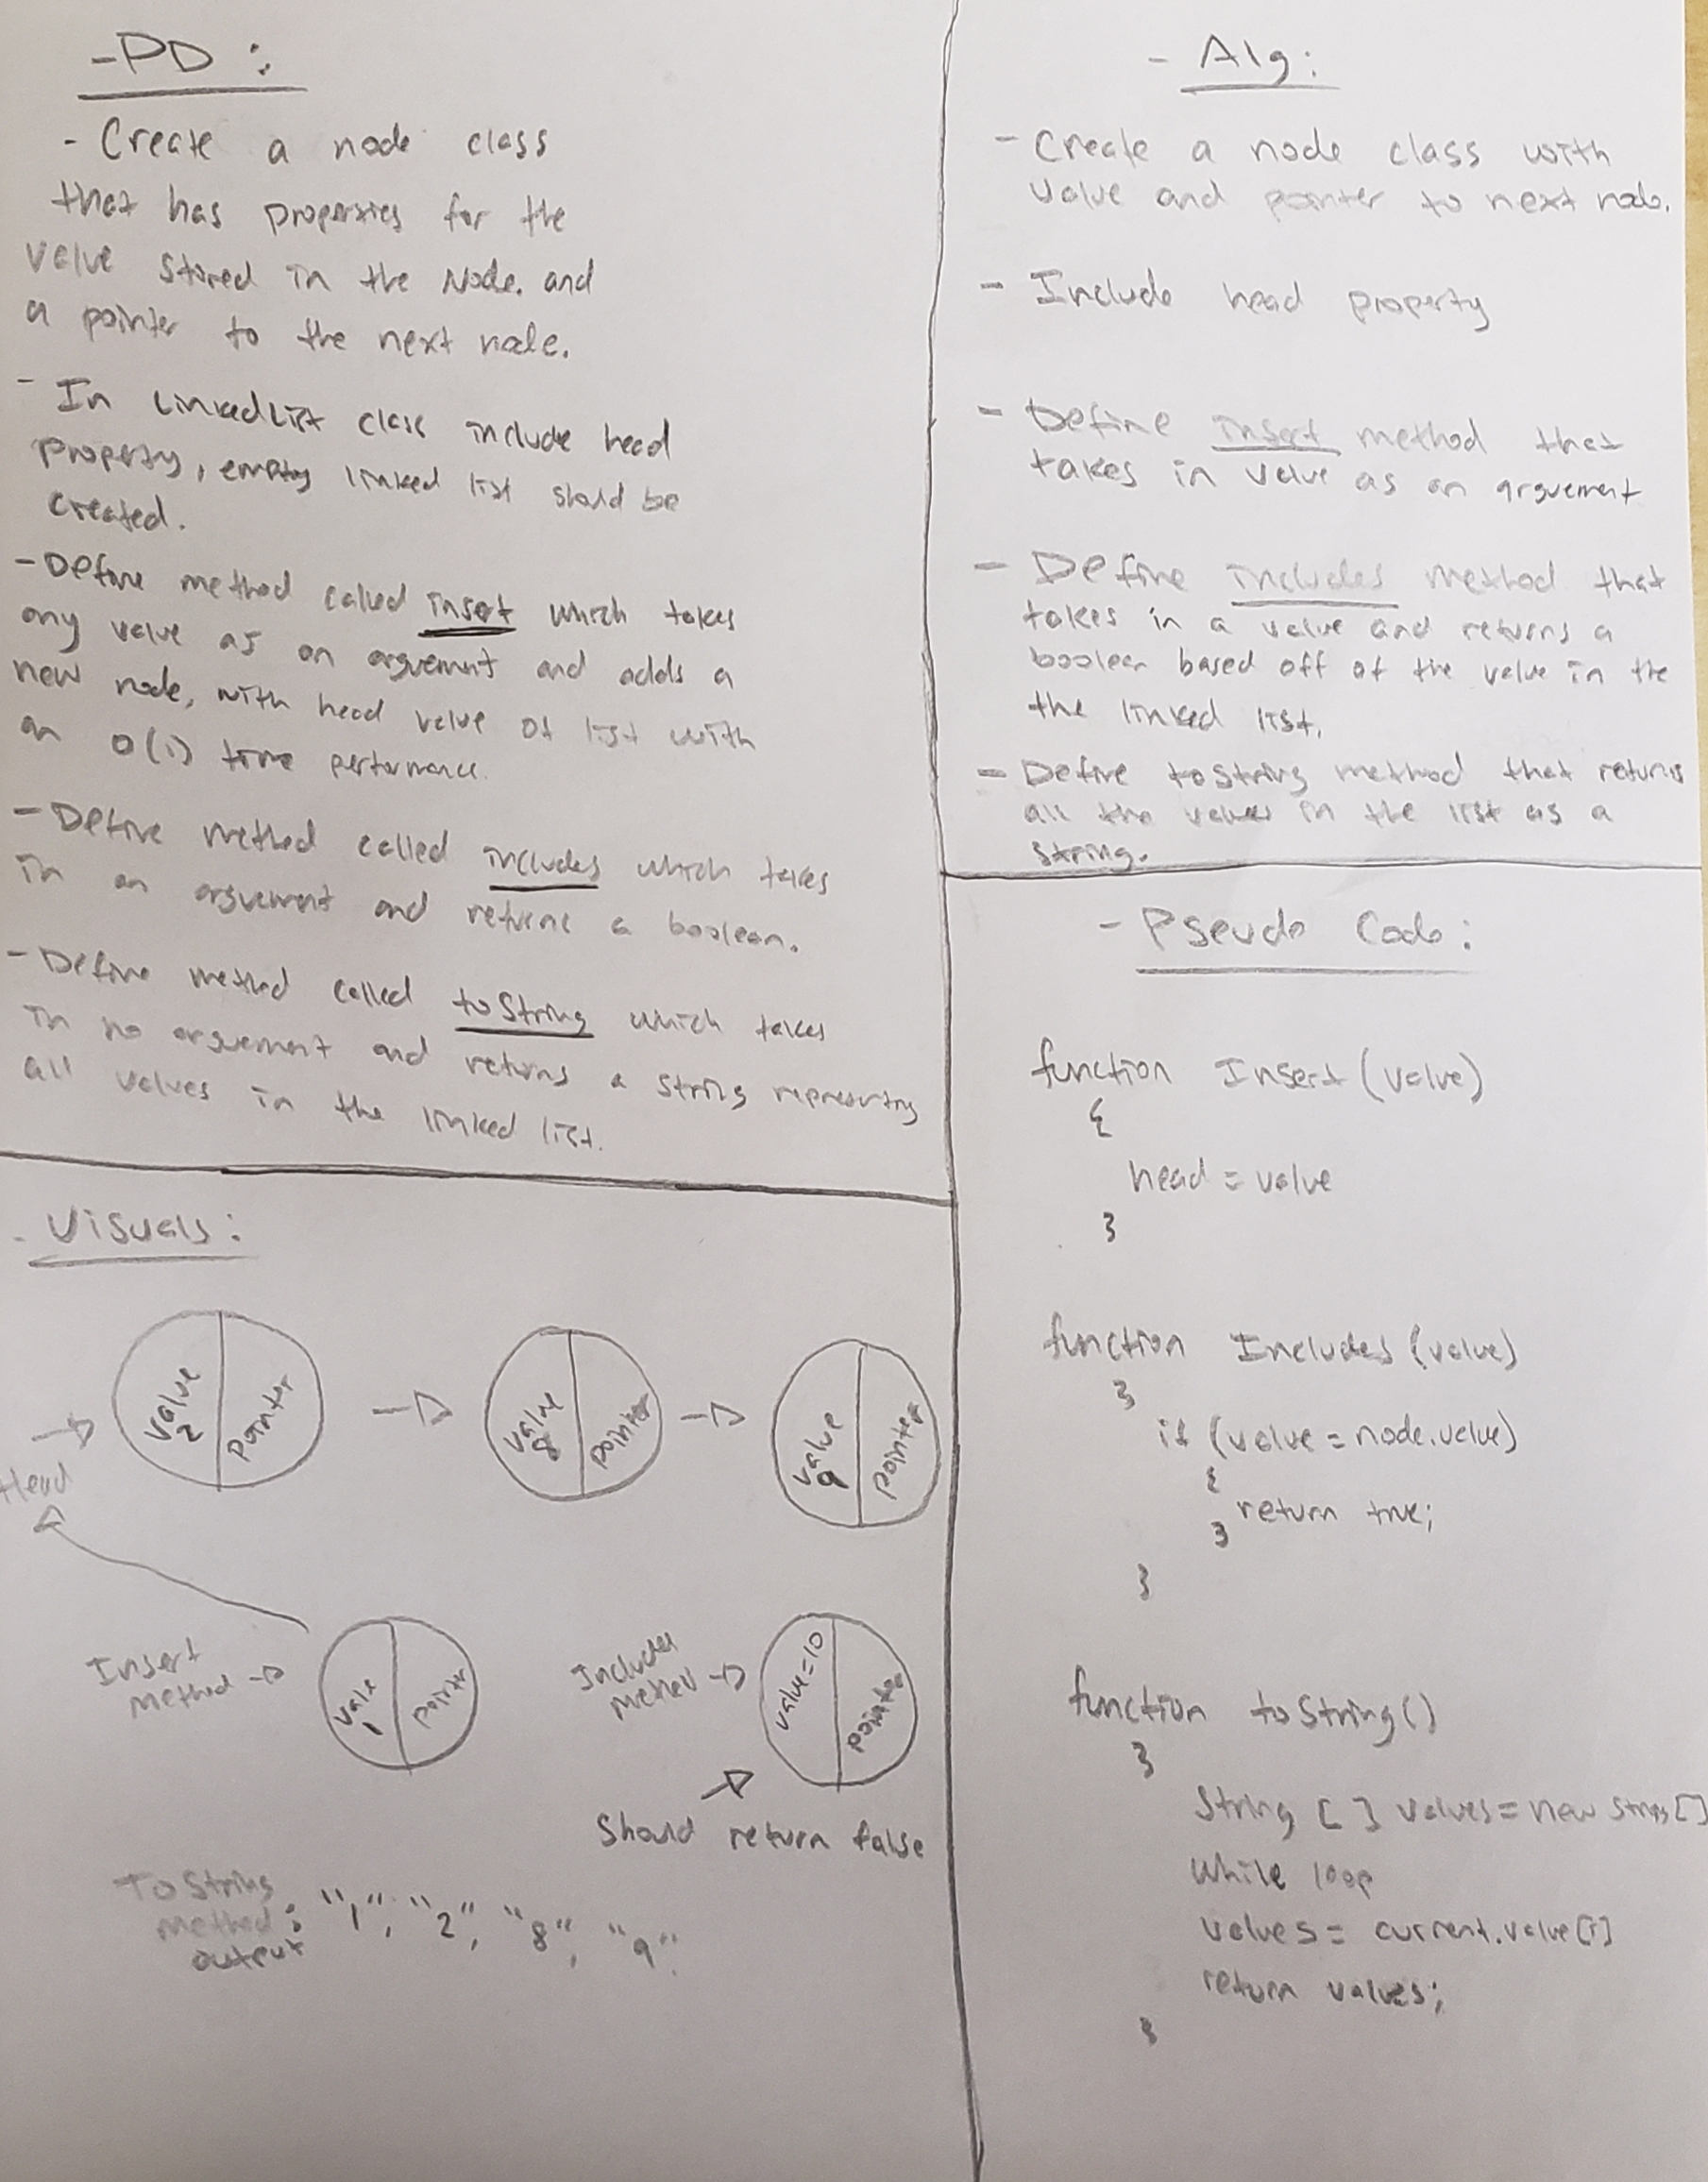 - PD :
- Create a node class
that has properties for the
value stored in the Node. and
a pointer to the next node.
- In LinkedList class include head
property, empty linked list should be
created.
- Define method called insert which takes
any value as an arguement and adds a
new node, with head value of list with
an O(1) time performance.
- Define method called includes which takes
in an arguement and returns a boolean.
- Define method called toString which takes
in no arguement and returns a string representing
all values in the linked list.
- Visuals:
Head
value 2
pointer
value 8
pointer
value 9
pointer
Insert
method
value 1
pointer
Includes
method
value=10
pointer
Should return false
ToString
method :
output
"1", "2", "8", "9"
- Alg:
- Create a node class with
value and pointer to next node.
- Include head property
- Define insert method that
takes in value as an arguement
- Define includes method that
takes in a value and returns a
boolean based off of the value in the
the linked list.
- Define toString method that returns
all the values in the list as a
string.
- Pseudo Code:
function Insert(value)
{
head = value
}
function Includes(value)
}
if (value = node.value)
{
return true;
}
}
function toString()
}
String [] values = new String[]
while loop
values = current.value[i]
return values;
}